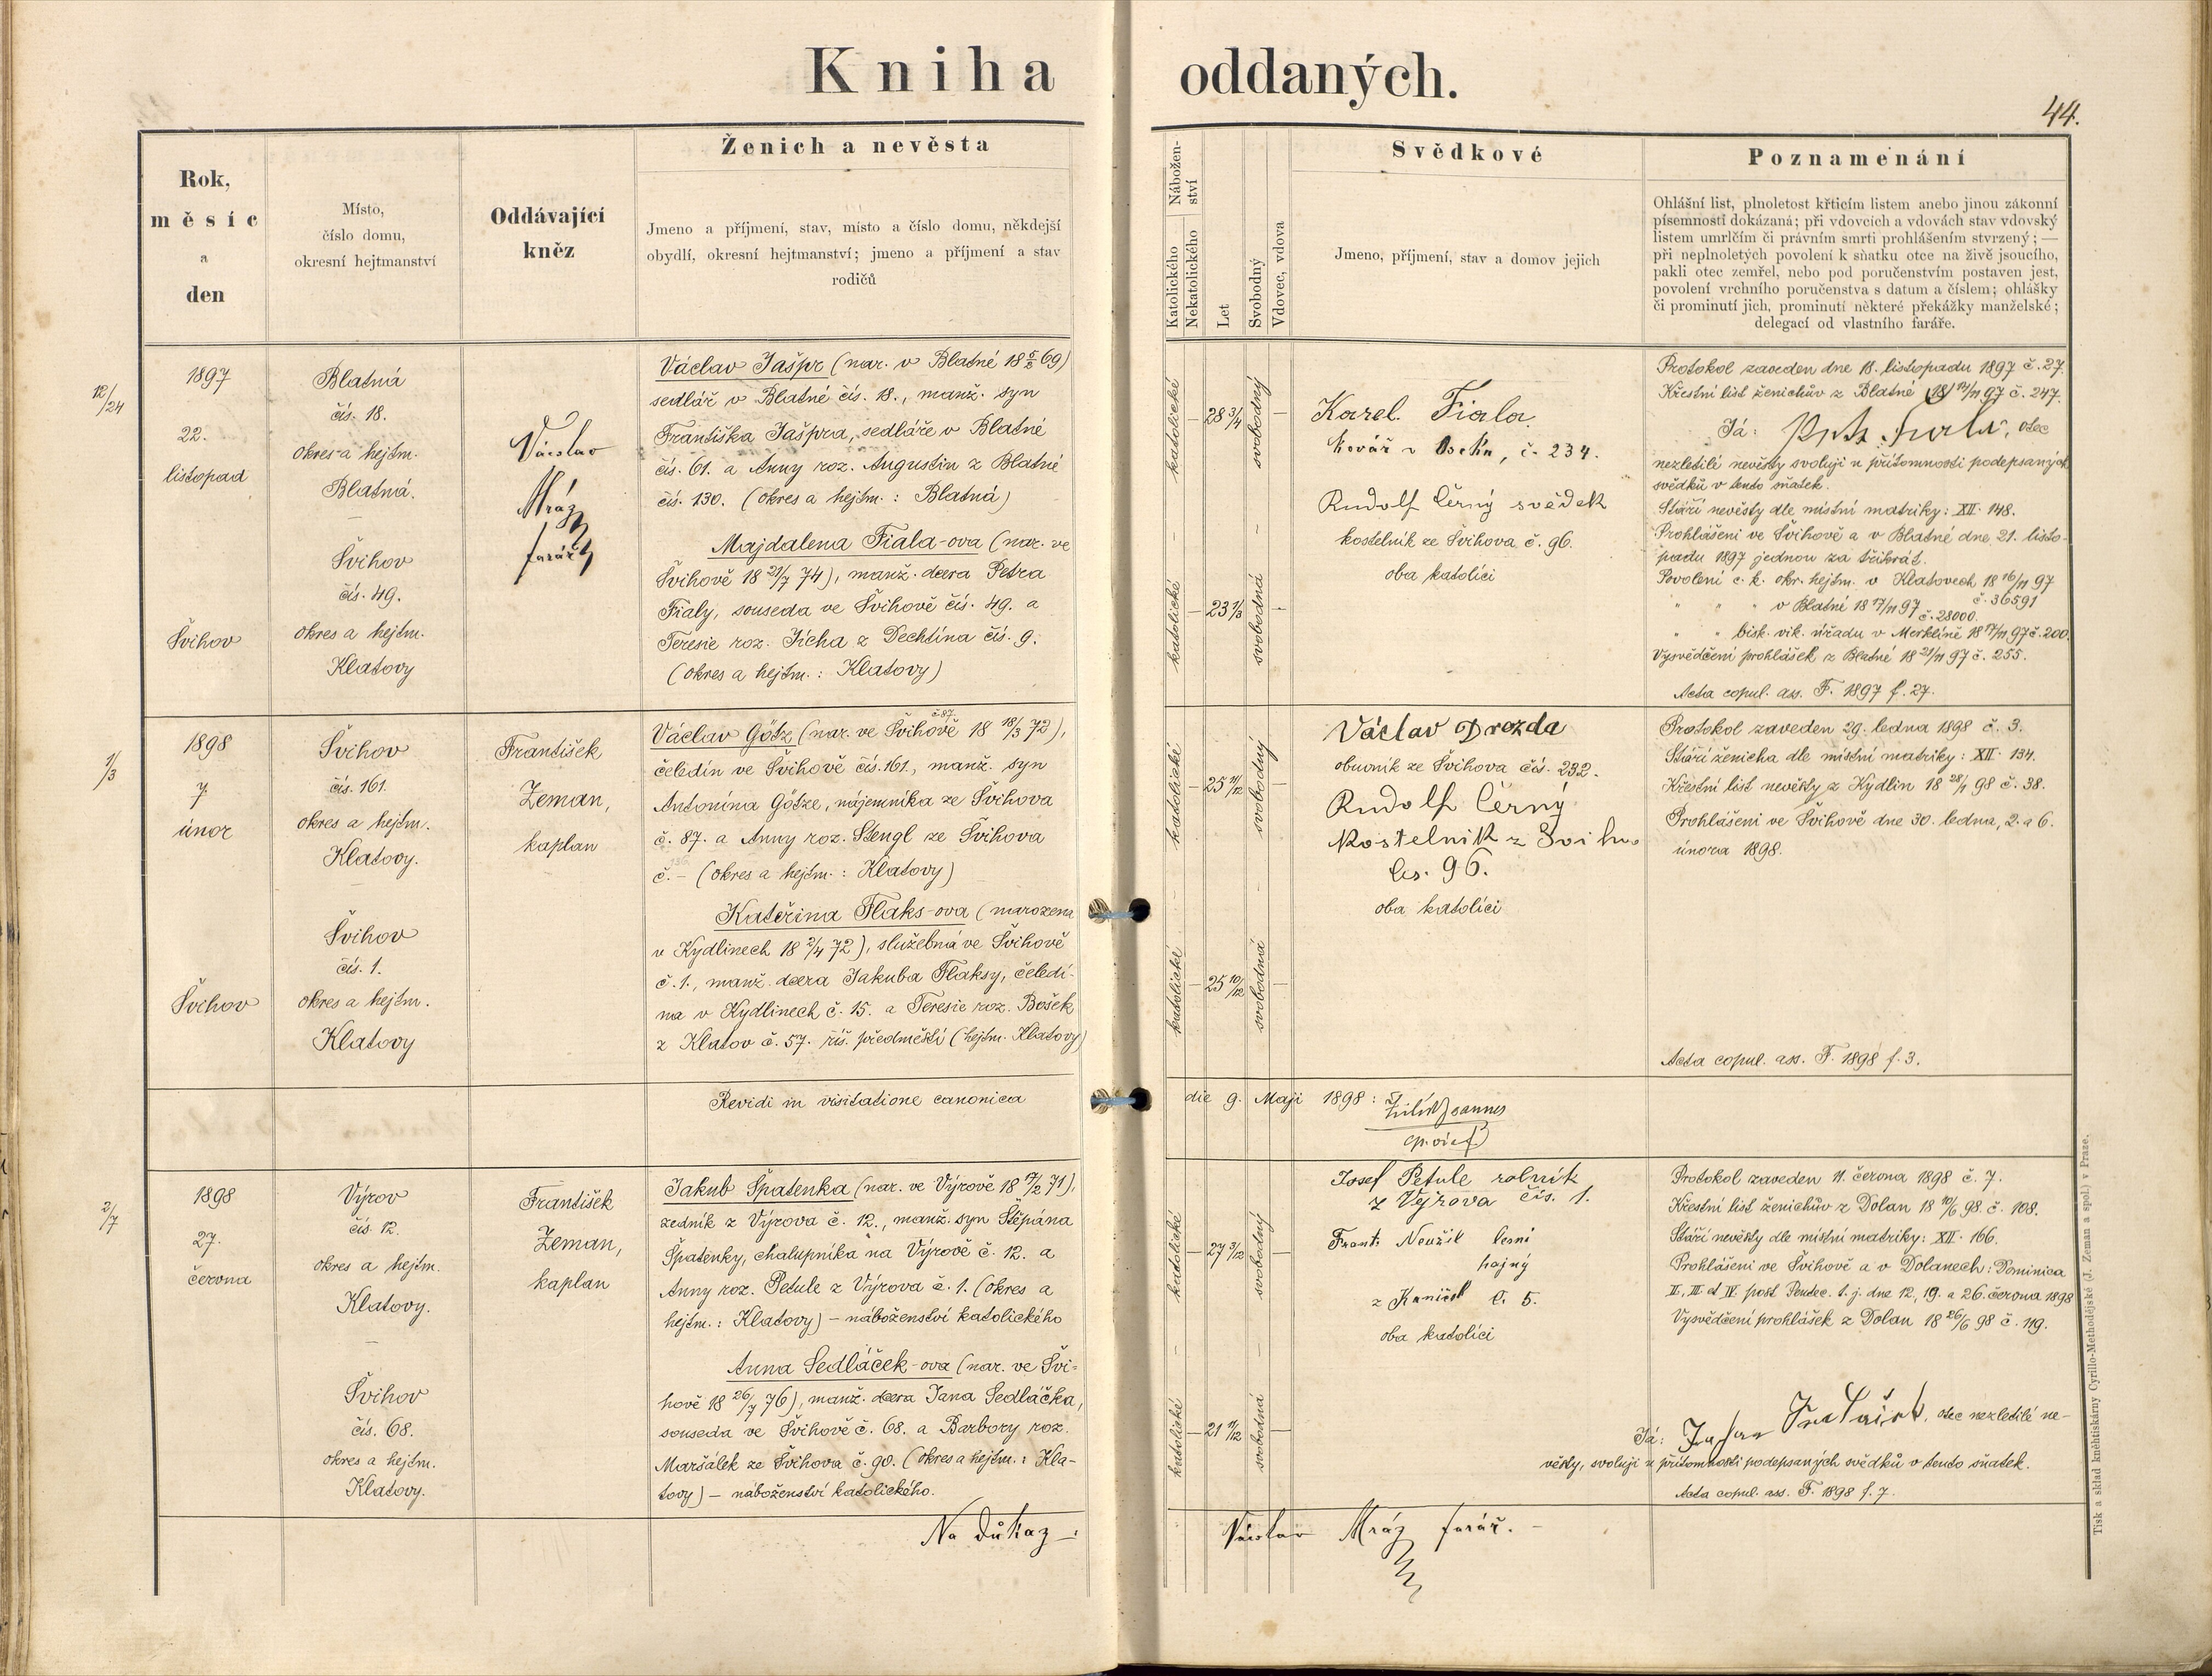 Kniha oddaných.
44.
Rok,
měsíc
a
den
Místo,
číslo domu,
okresní hejtmanství
Oddávající
kněz
Ženich a nevěsta
Jmeno a příjmení, stav, místo a číslo domu, někdejší
obydlí, okresní hejtmanství; jmeno a příjmení a stav
rodičů
Nábožen-
ství
Katolického
Nekatolického
Let
Svobodný
Vdovec, vdova
Svědkové
Jmeno, příjmení, stav a domov jejich
Poznamenání
Ohlášní list, plnoletost křticím listem anebo jinou zákonní
písemností dokázaná; při vdovcích a vdovách stav vdovský
listem umrlčím či právním smrti prohlášením stvrzený; —
při neplnoletých povolení k sňatku otce na živě jsoucího,
pakli otec zemřel, nebo pod poručenstvím postaven jest,
povolení vrchního poručenstva s datum a číslem; ohlášky
či prominutí jich, prominutí některé překážky manželské;
delegací od vlastního faráře.
12/24
1897
22.
listopad
Švihov
Blatná
čís. 18.
okres a hejtm.
Blatná.
—
Švihov
čís. 49.
okres a hejtm.
Klatovy
Václav
Mráz
farář
Václav Jašpr (nar. v Blatné 18 5/2 69)
sedlář v Blatné čís. 18., manž. syn
Františka Jašpra, sedláře v Blatné
čís. 61. a Anny roz. Augustin z Blatné
čís. 130. (okres a hejtm.: Blatná)
Majdalena Fiala-ova (nar. ve
Švihově 18 21/7 74), manž. dcera Petra
Fialy, souseda ve Švihově čís. 49. a
Teresie roz. Jícha z Dechtína čís. 9.
(okres a hejtm.: Klatovy)
katolické
28 3/4
svobodný
katolické
23 1/3
svobodná
Karel Fiala
kovář v č. 234.
Rudolf Černý svědek
kostelník ze Švihova č. 96.
oba katolíci
Protokol zaveden dne 18. listopadu 1897 č. 27.
Křestní list ženichův z Blatné 18 14/11 97 č. 247.
Já: , otec
nezletilé nevěsty svoluji u přítomnosti podepsaných
svědků v tento sňatek.
Stáří nevěsty dle místní matriky: XII. 148.
Prohlášení ve Švihově a v Blatné dne 21. listo-
padu 1897 jednou za třikrát.
Povolení c. k. okr. hejtm. v Klatovech 18 16/11 97
č. 36591
" " " v Blatné 18 17/11 97 č. 28000.
" " bisk. vik. úřadu v Merklíně 18 17/11 97 č. 200.
Vysvědčení prohlášek z Blatné 18 21/11 97 č. 255.
Acta copul. ass. F. 1897 f. 27.
1/3
1898
7
únor
Švihov
Švihov
čís. 161.
okres a hejtm.
Klatovy.
—
Švihov
čís. 1.
okres a hejtm.
Klatovy
František
Zeman,
kaplan
č. 87.
Václav Götz (nar. ve Švihově 18 18/3 72),
čeledín ve Švihově čís. 161., manž. syn
Antonína Götze, nájemníka ze Švihova
č. 87. a Anny roz. Stengl ze Švihova
č. – (okres a hejtm.: Klatovy)
Kateřina Flaks-ova (narozena
v Kydlinech 18 2/4 72), služebná ve Švihově
č. 1., manž. dcera Jakuba Flaksy, čeledí-
na v Kydlinech č. 15. a Teresie roz. Bošek
z Klatov č. 57. říš. předměstí (hejtm. Klatovy)
katolické
25 11/12
svobodný
katolické
25 10/12
svobodná
Václav Drozda
obuvník ze Švihova čís. 232.
Rudolf Černý
Kostelník z Švihova
čís. 96.
oba katolíci
Protokol zaveden 29. ledna 1898 č. 3.
Stáří ženicha dle místní matriky: XII. 134.
Křestní list nevěsty z Kydlin 18 28/1 98 č. 38.
Prohlášení ve Švihově dne 30. ledna, 2. a 6.
února 1898.
Acta copul. ass. F. 1898 f. 3.
Revidi in visitatione canonica die 9. Maji 1898:
Joannes
2/7
1898
27.
června
Výrov
čís. 12.
okres a hejtm.
Klatovy.
—
Švihov
čís. 68.
okres a hejtm.
Klatovy.
František
Zeman,
kaplan
Jakub Špatenka (nar. ve Výrově 18 17/2 71),
zedník z Výrova č. 12., manž. syn Štěpána
Špatenky, chalupníka na Výrově č. 12. a
Anny roz. Petule z Výrova č. 1. (okres a
hejtm.: Klatovy) – náboženství katolického
Anna Sedláček-ova (nar. ve Švi-
hově 18 26/7 76), manž. dcera Jana Sedláčka,
souseda ve Švihově č. 68. a Barbory roz.
Maršálek ze Švihova č. 90. (okres a hejtm.: Kla-
tovy) – náboženství katolického.
katolické
27 3/12
svobodný
katolické
21 11/12
svobodná
Josef Petule rolník
z Vejrova čís. 1.
Frant. Neužil lesní
hajný
z č. 5.
oba katolíci
Protokol zaveden 11. června 1898 č. 7.
Křestní list ženichův z Dolan 18 10/6 98. č. 108.
Stáří nevěsty dle místní matriky: XII. 166.
Prohlášení ve Švihově a v Dolanech: Dominica
II., III. et IV. post Pentec. t. j. dne 12., 19. a 26. června 1898
Vysvědčení prohlášek z Dolan 18 26/6 98 č. 119.
Já: , otec nezletilé ne-
věsty, svoluji u přítomnosti podepsaných svědků v tento sňatek.
Acta copul. ass. F. 1898 f. 7.
Na důkaz –: Václav Mráz farář. –
Tisk a sklad kněhtiskárny Cyrillo-Methodějské (J. Zeman a spol.) v Praze.